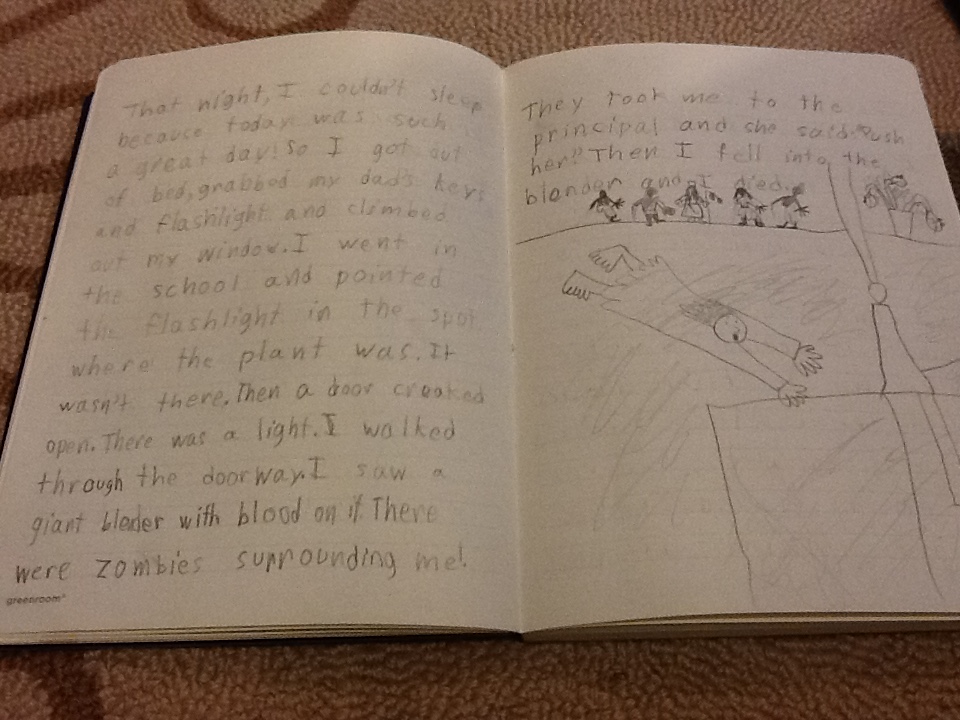 That night, I couldn't sleep
because today was such
a great day! So I got out
of bed, grabbed my dad's keys
and flashlight and climbed
out my window. I went in
the school and pointed
the flashlight in the spot
where the plant was. It
wasn't there. Then a door creaked
open. There was a light. I walked
through the doorway. I saw a
giant bleder with blood on it. There
were zombies surrounding me!
greenroom®
They took me to the
principal and she said "Push
her!" Then I fell into the
blender and I died.